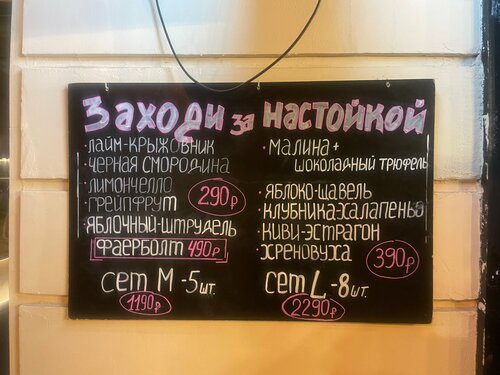 Заходи за настойкой
· лайм-крыжовник
· черная смородина
· лимончелло
· грейпфрут
290₽
· яблочный-штрудель
фаерболт 490₽
сет M - 5 шт.
1190₽
· малина +
шоколадный трюфель
· яблоко-щавель
· клубника-халапеньо
· киви-эстрагон
· хреновуха
390₽
сет L - 8 шт.
2290₽